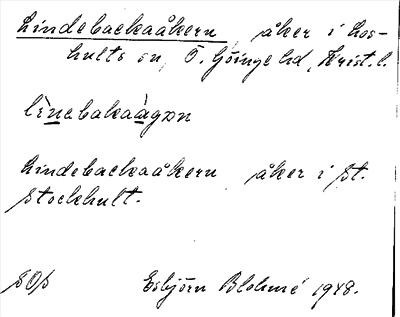 Lindebackaåkern, åker i Los-
hults sn, Ö. Göinge hd, Krist. l.
lìnebakaàgɒn
Lindebackaåkern åker i St.
Stockhult.
SOß
Esbjörn Blohmé 1948.